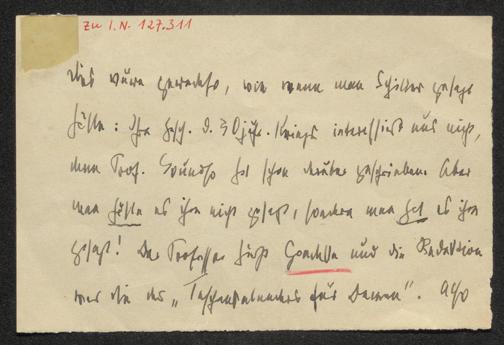 zu I.N. 127.311
Das wäre geradeso, wie wenn man Schiller gesagt
hätte: Ihre Gesch. d. 30jähr. Kriegs interessiert uns nicht,
denn Prof. Soundso hat schon darüber geschrieben. Aber
man hätte es ihm nicht gesagt, sondern man hat es ihm
gesagt! Der Professor hieß und die Redaktion
war die des „Taschenkalenders für Damen".